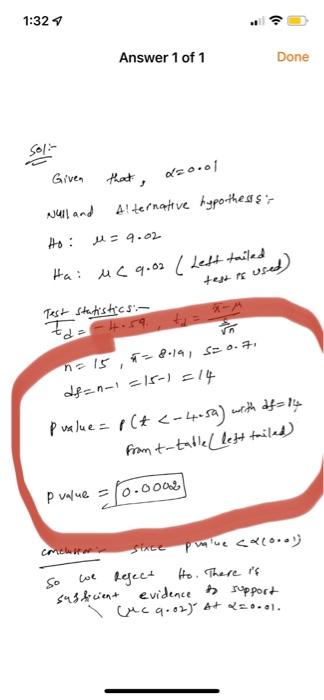 1:32
Answer 1 of 1
Done
Sol:-
Given that, α=0.01
Null and Alternative hypothesis:-
H0: μ = 9.02
Ha: μ < 9.02 (Left tailed
test is used)
Test statistics:-
td = -4.59, td = x̄-μ / s/√n
n = 15, x̄ = 8.19, s = 0.7,
df = n-1 = 15-1 = 14
P value = P(t < -4.59) with df = 14
From t-table (left tailed)
P value = 0.0002
conclusion:- since p value < α(0.01)
So we Reject H0. There is
sufficient evidence to support
(μ < 9.02) At α = 0.01.